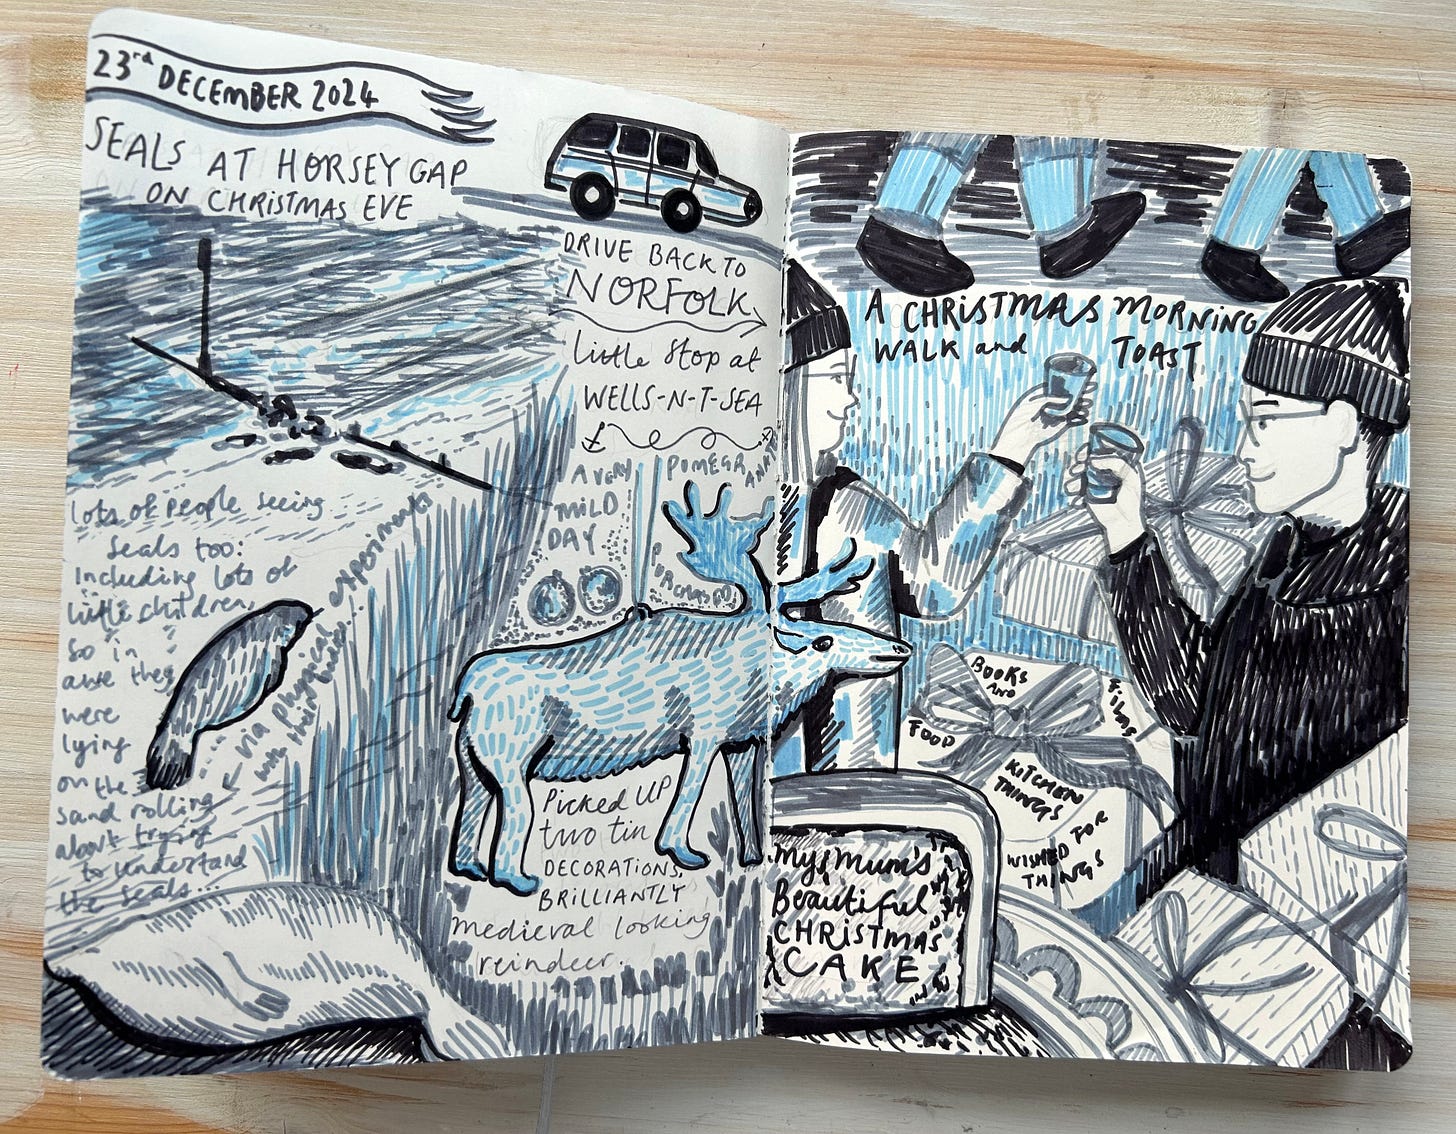 23rd DECEMBER 2024
SEALS AT HORSEY GAP
ON CHRISTMAS EVE
lots of people seeing
seals too:
including lots of
little children,
so in
awe they
were
lying
on the
sand rolling
about trying
to understand
the seals...
via physical experiments
with themselves
DRIVE BACK TO
NORFOLK
little stop at
WELLS-N-T-SEA
A VERY
MILD
DAY
POMEGRANATE
Picked UP
two tin
DECORATIONS,
BRILLIANTLY
medieval looking
reindeer.
A CHRISTMAS MORNING
WALK and TOAST
BOOKS
AND
FILMS
FOOD
KITCHEN
THINGS
WISHED FOR
THINGS
my mum's
Beautiful
CHRISTMAS
CAKE